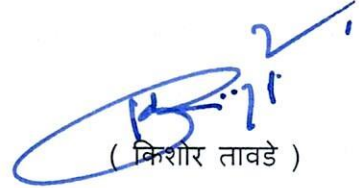 ( किशोर तावडे )